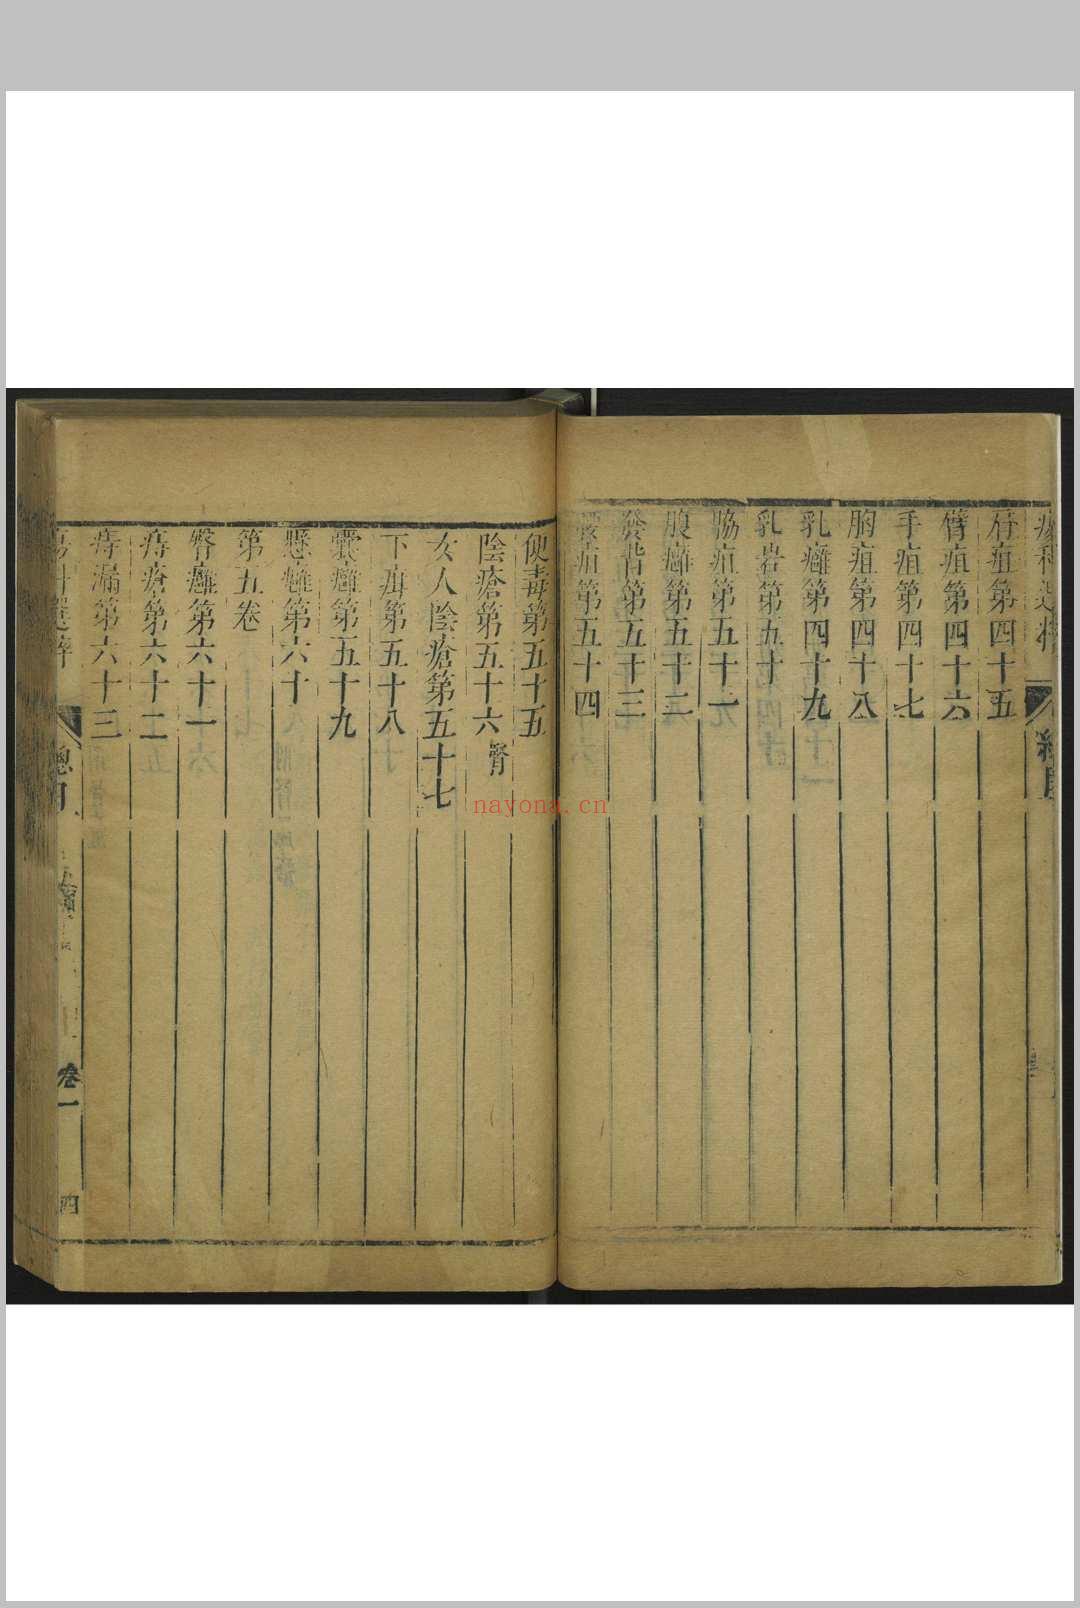 疽第四十五
臂疽第四十六
手疽第四十七
胸疽第四十八
乳癰第四十九
乳岩第五十
脇疽第五十一
腹癰第五十二
發背第五十三
疽第五十四
便毒第五十五
陰瘡第五十六 腎
女人陰瘡第五十七
下疳第五十八
囊癰第五十九
懸癰第六十
第五卷
臀癰第六十一
痔瘡第六十二
痔漏第六十三
總目
卷一
四
nayona.cn